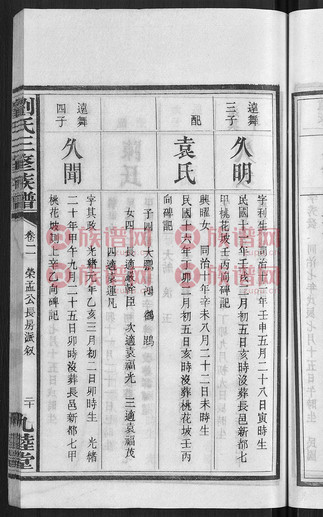 遠舞三子
久明
字利生 同治十一年壬申五月二十八日寅時生
民國十一年壬戌三月初五日亥時沒葬長邑新都七
甲桃花坡壬丙向碑記
配
袁氏
興曜女 同治十年辛未八月二十二日未時生
民國十六年丁卯二月初五日亥時沒葬桃花坡壬丙
向碑記
子四 大鵬 鴻 鶴 鵾
女四 長適嚴幹臣 次適袁福光 三適袁福茂
四適
遠舞四子
久聞
字其政 光緒元年乙亥三月初二日卯時生 光緒
二十年甲午九月二十五日卯時沒葬長邑新都七甲
桃花坡剅上辛乙向碑記
劉氏三修族譜
卷二 榮孟公長房派敘
二十
九睦堂
族譜网